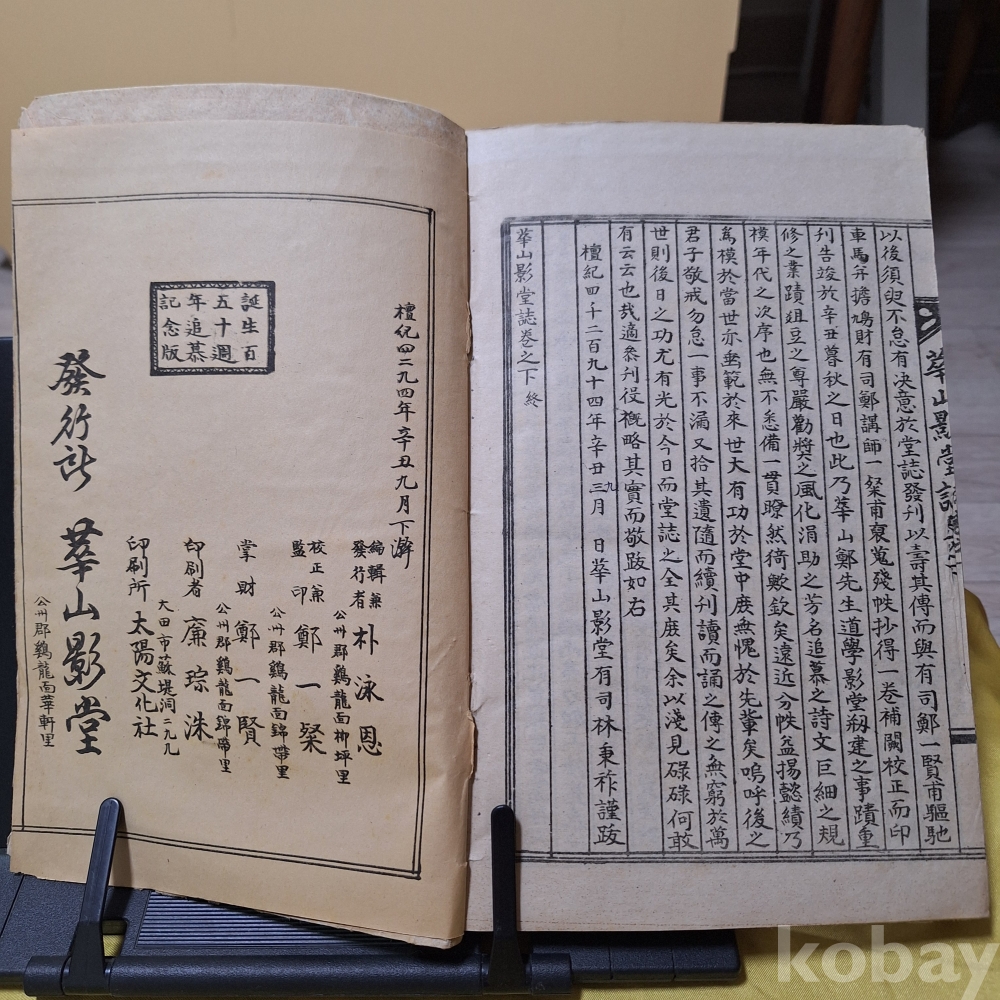 華山影堂誌卷之下
以後須臾不怠有決意於堂誌發刊以壽其傳而與有司鄭一賢甫驅馳
車馬弁擔鳩財有司鄭講師一粲甫裒蒐殘帙抄得一卷補闕校正而印
刊告竣於辛丑暮秋之日也此乃華山鄭先生道學影堂刱建之事蹟重
修之業蹟俎豆之尊嚴勸奬之風化涓助之芳名追慕之詩文巨細之規
模年代之次序也無不悉備一貫瞭然猗歟欽矣遠近分帙益揚懿績乃
爲模於當世亦垂範於來世大有功於堂中庶無愧於先輩矣嗚呼後之
君子敬戒勿怠一事不漏又拾其遺隨而續刊讀而誦之傳之無窮於萬
世則後日之功尤有光於今日而堂誌之全其庶矣余以淺見碌碌何敢
有云云也哉適叅刊役槪略其實而敬跋如右
檀紀四千二百九十四年辛丑九月 日華山影堂有司林秉祚謹跋
華山影堂誌卷之下 終
檀紀四二九四年辛丑九月下澣
誕生百
五十週
年追慕
記念版
編輯兼
發行者 朴泳恩
公州郡鷄龍面柳坪里
校正兼
監印 鄭一粲
公州郡鷄龍面錦帶里
掌財 鄭一賢
公州郡鷄龍面錦帶里
印刷者 廉琮洙
大田市蘇堤洞二九九
印刷所 太陽文化社
發行所 華山影堂
公州郡鷄龍面華軒里
kobay